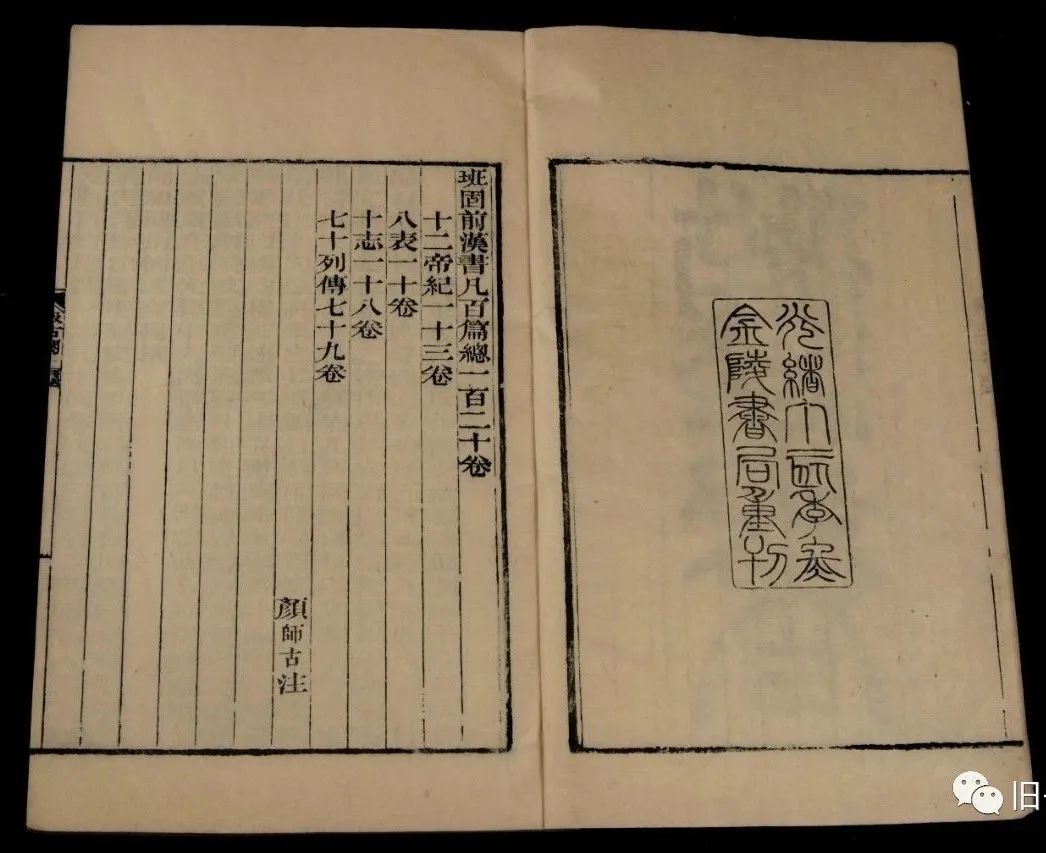 光緒丁亥季冬
金陵書局重刊
班固前漢書凡百篇總一百二十卷
十二帝紀一十三卷
八表一十卷
十志一十八卷
七十列傳七十九卷
顏師古注
汲古閣
旧